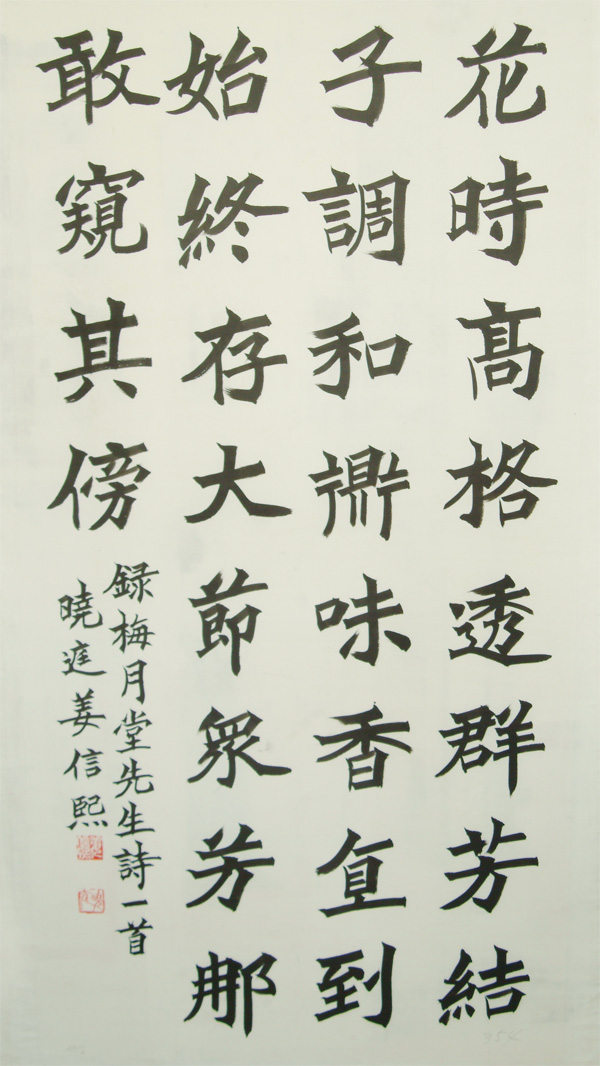 花時髙格透群芳結
子調和鼎味香直到
始終存大節衆芳那
敢窺其傍
録梅月堂先生詩一首
曉庭姜信熙